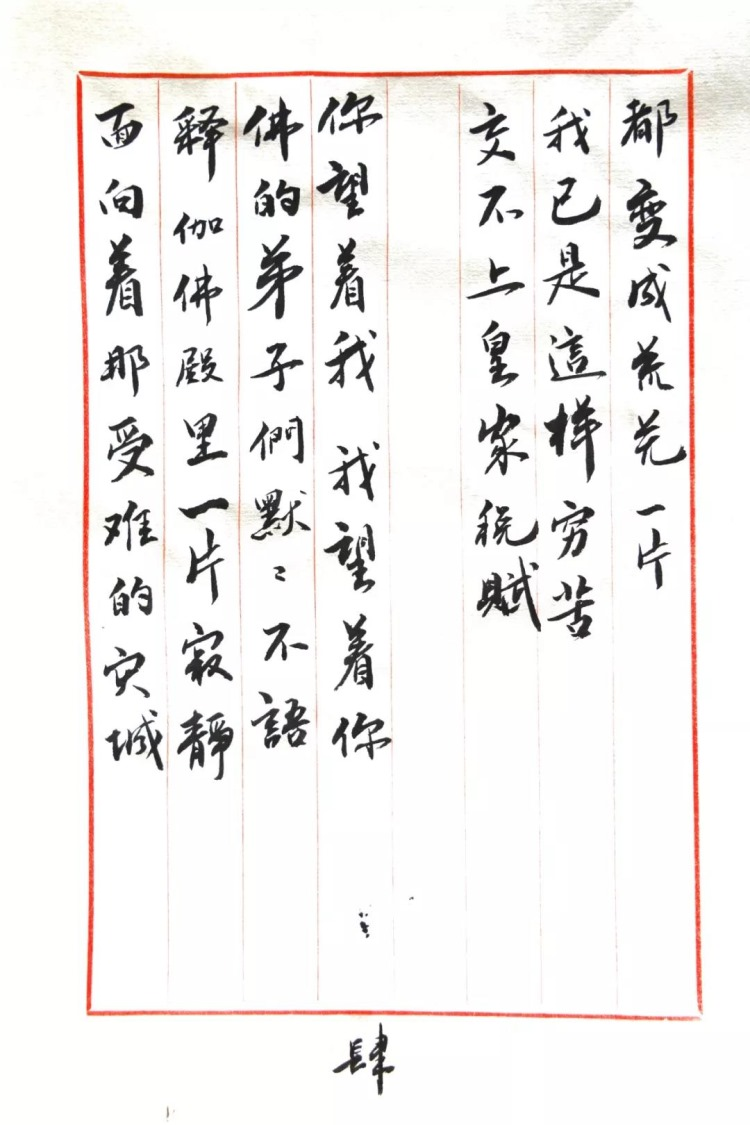 都变成荒芜一片
我已是這样穷苦
交不上皇家税赋
你望着我 我望着你
佛的弟子們默〻不語
释伽佛殿里一片寂靜
面向着那受难的灾城
肆